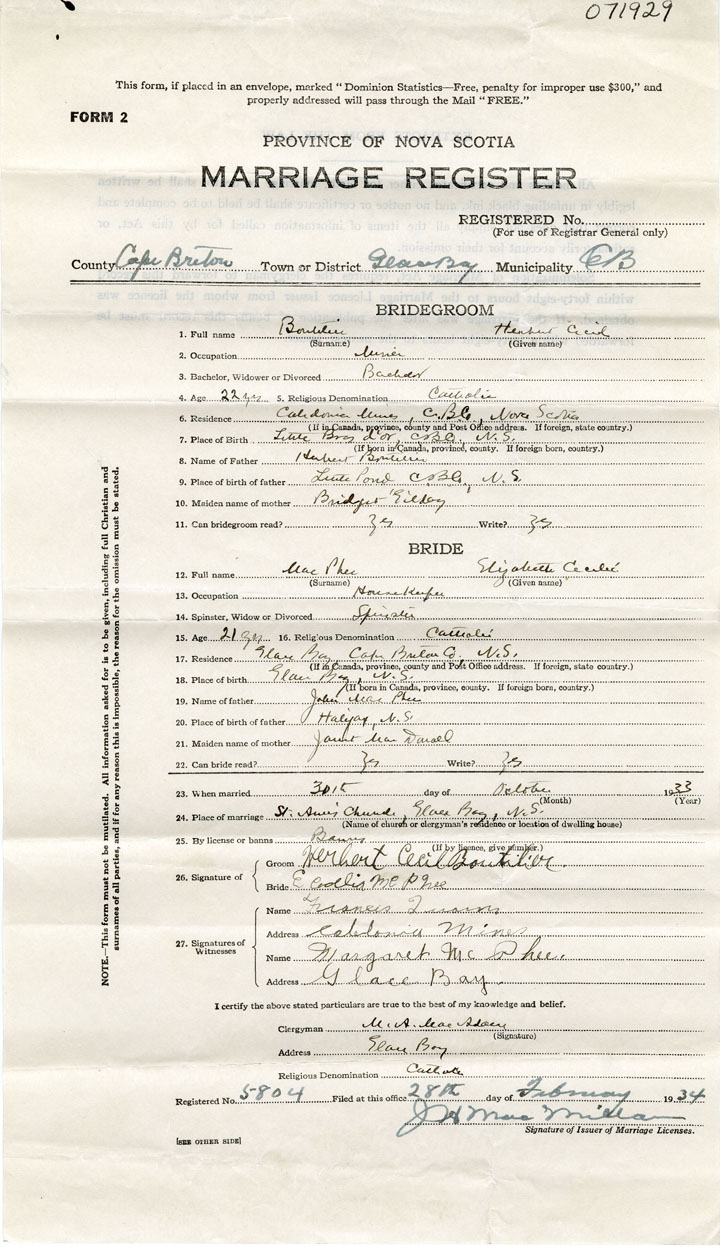 071929
This form, if placed in an envelope, marked "Dominion Statistics—Free, penalty for improper use $300," and
properly addressed will pass through the Mail "FREE."
FORM 2
PROVINCE OF NOVA SCOTIA
MARRIAGE REGISTER
REGISTERED No.
(For use of Registrar General only)
County Cape Breton Town or District Glace Bay Municipality CB
BRIDEGROOM
1. Full name Boutilier Herbert Cecil
(Surname) (Given name)
2. Occupation Miner
3. Bachelor, Widower or Divorced Bachelor
4. Age 22 yrs 5. Religious Denomination Catholic
6. Residence Caledonia Mines, C.B.Co., Nova Scotia
(If in Canada, province, county and Post Office address. If foreign, state country.)
7. Place of Birth Little Bras d'or, C.B.Co., N.S.
(If born in Canada, province, county. If foreign born, country.)
8. Name of Father Herbert Boutilier
9. Place of birth of father Little Pond C.B.Co., N.S.
10. Maiden name of mother Bridget Gilday
11. Can bridegroom read? Yes Write? Yes
BRIDE
12. Full name Mac Phee Elizabeth Cecilie
(Surname) (Given name)
13. Occupation Housekeeper
14. Spinster, Widow or Divorced Spinster
15. Age 21 yrs 16. Religious Denomination Catholic
17. Residence Glace Bay, Cape Breton Co., N.S.
(If in Canada, province, county and Post Office address. If foreign, state country.)
18. Place of birth Glace Bay, N.S.
(If born in Canada, province, county. If foreign born, country.)
19. Name of father John Mac Phee
20. Place of birth of father Halifax, N.S.
21. Maiden name of mother Janet Mac
22. Can bride read? Yes Write? Yes
23. When married 30th day of October 1933
(Month) (Year)
24. Place of marriage St. Ann's Church, Glace Bay, N.S.
(Name of church or clergyman's residence or location of dwelling house)
25. By license or banns Banns
(If by licence, give number.)
26. Signature of
Groom Herbert Cecil Boutilier.
Bride E Mc Phee
27. Signatures of Witnesses
Name Francis
Address Caledonia Mines
Name Margaret Mc Phee.
Address Glace Bay.
NOTE.—This form must not be mutilated. All information asked for is to be given, including full Christian and
surnames of all parties, and if for any reason this is impossible, the reason for the omission must be stated.
I certify the above stated particulars are true to the best of my knowledge and belief.
Clergyman M. A. Mac Adam
(Signature)
Address Glace Bay
Religious Denomination Catholic
Registered No. 5804 Filed at this office 28th day of February 1934
J H Mac Millan
Signature of Issuer of Marriage Licenses.
[SEE OTHER SIDE]